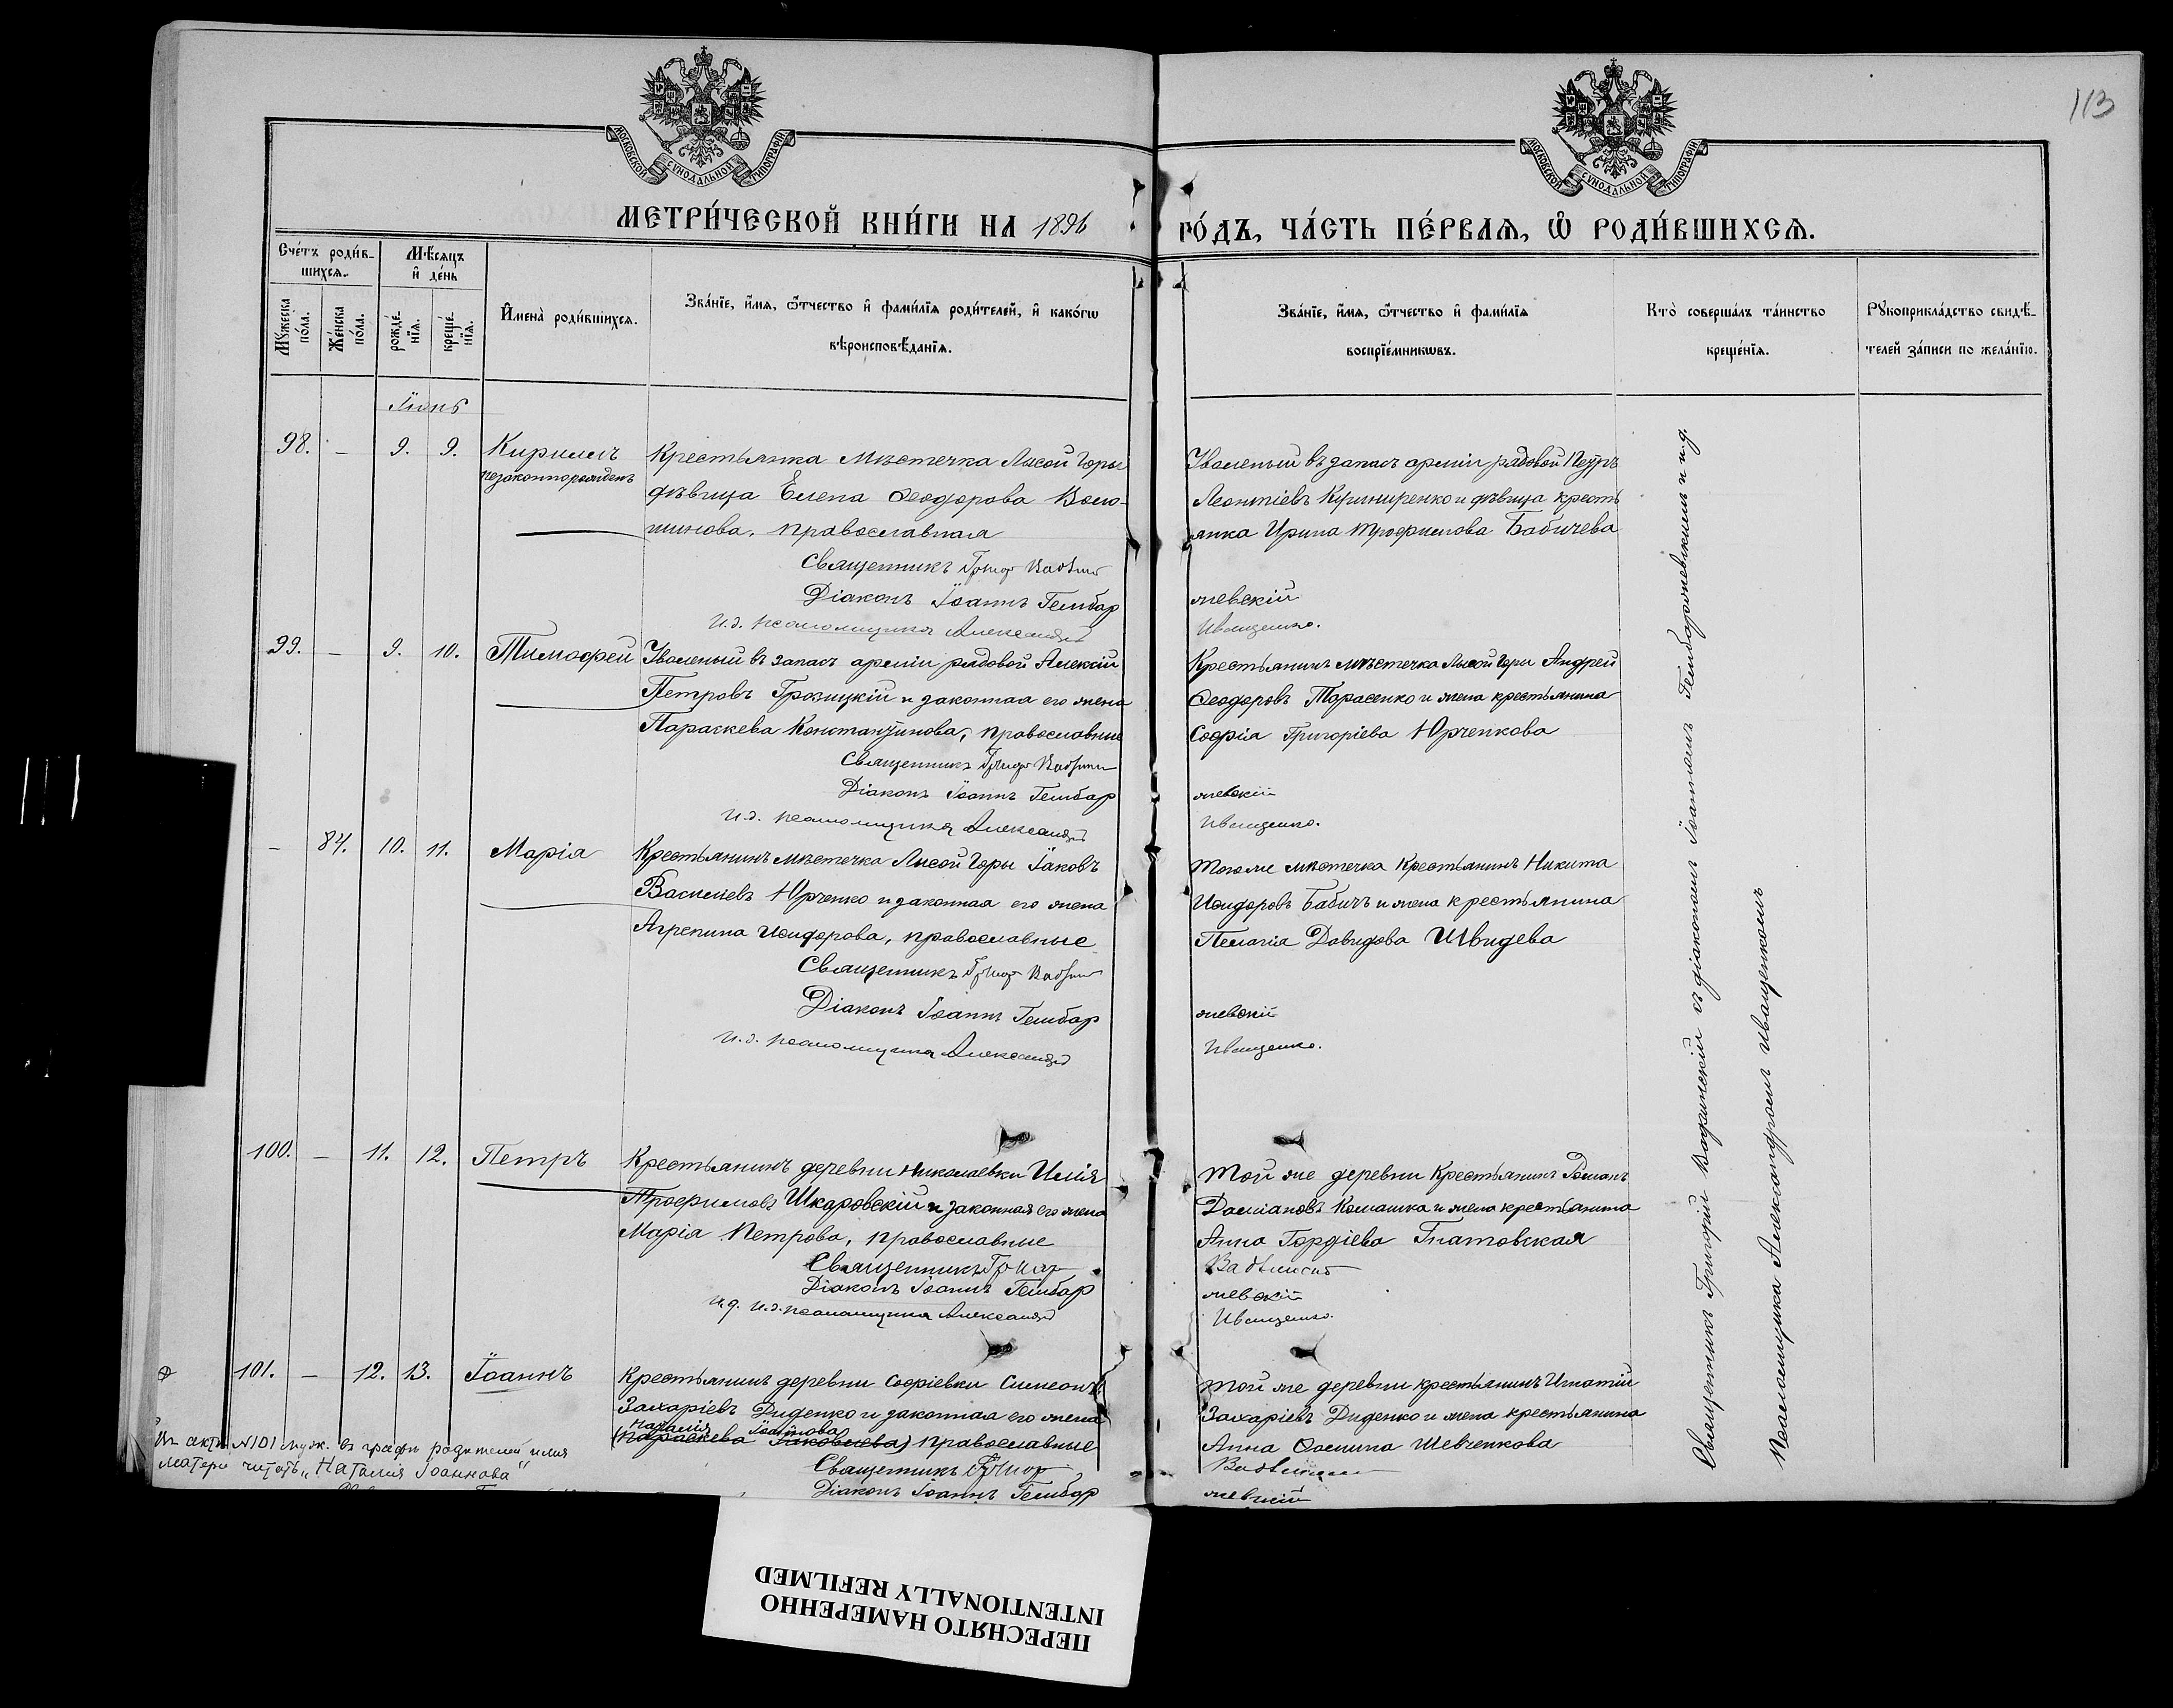 113
МОСКОВСКОЙ СѴНОДАЛЬНОЙ ТИПОГРАФІИ
МОСКОВСКОЙ СѴНОДАЛЬНОЙ ТИПОГРАФІИ
МЕТРИ́ЧЕСКОЙ КНИ́ГИ НА 1896 ГО́ДЪ, ЧА́СТЬ ПЕ́РВАЯ, Ѡ РОДИ́ВШИХСЯ.
Сче́тъ роди́вшихся.
Мꙋ́жеска по́ла.
Же́нска по́ла.
Мѣ́сяцъ и҆ де́нь
рожде́нїя.
креще́нїя.
И҆мена̀ роди́вшихся.
Зва́нїе, и҆́мя, ѻ҆́тчество и҆ фами́лїя роди́телей, и҆ како́гѡ
вѣроисповѣ́данїя.
Зва́нїе, и҆́мя, ѻ҆́тчество и҆ фами́лїя
воспрїе́мникѡвъ.
Кто̀ соверша́лъ та́инство
креще́нїя.
Рꙋкоприкла́дство свидѣ́-
телей за́писи по жела́нїю.
Іюнь
98. – 9. 9. Кириллъ
незаконнорожденъ
Крестьянка мѣстечка Лысой Горы
дѣвица Елена Ѳеодорова Воло-
шинова, православная
Священникъ Григор
Діаконъ Іоаннъ Гембар
И.д. псаломщика Александр
Уволеный въ запасъ арміи рядовой Петръ
Леонтіевъ Кушниренко и дѣвица кресть
янка Ирина Трофимова Бабичева
жевскій
Иващенко.
99. – 9. 10. Тимофей
Уволеный въ запасъ арміи рядовой Алексій
Петровъ Грозицкій и законная его жена
Параскева Константинова, православные
Священникъ Григор
Діаконъ Іоаннъ Гембар
И.д. псаломщика Александр
Крестьянинъ мѣстечка Лысой Горы Андрей
Ѳеодоровъ Тарасенко и жена крестьянина
Софія Григоріева Юрченкова
жевскій
Иващенко.
– 84. 10. 11. Марія
Крестьянинъ мѣстечка Лысой Горы Іаковъ
Васильевъ Юрченко и законная его жена
Агрепина Исидорова, православные
Священникъ Григор
Діаконъ Іоаннъ Гембар
И.д. псаломщика Александр
Того же мѣстечка Крестьянинъ Никита
Исидоровъ Бабичъ и жена крестьянина
Пелагія Давидова Швидева
жевскій
Иващенко.
100. – 11. 12. Петръ
Крестьянинъ деревни Николаевки Илія
Трофимовъ Шкаровскій и законная его жена
Марія Петрова, православные
Священникъ Григор
Діаконъ Іоаннъ Гембар
И.д. И.д. псаломщика Александр
Той же деревни Крестьянинъ Романъ
Даміановъ Комашка и жена крестьянина
Анна Гордіева Гнатовская
жевскій
Иващенко.
101. – 12. 13. Іоаннъ
Крестьянинъ деревни Софіевки Симеонъ
Захаріевъ Диденко и законная его жена
Наталія Іоаннова
(Параскева Іаковлева) православные
Священникъ Григор
Діаконъ Іоаннъ Гембар
Той же деревни крестьянинъ Игнатій
Захаріевъ Диденко и жена крестьянина
Анна Фомина Шевченкова
жевскій
Въ актѣ N101 муж. въ графѣ родителей имя
матери читать „Наталія Іоаннова"
Священникъ Григорій Вадзинскій съ діакономъ Іоанномъ Гембаржевскимъ и и.д.
Псаломщика Александромъ Иващенкомъ
ПЕРЕСНЯТО НАМЕРЕННО
INTENTIONALLY REFILMED